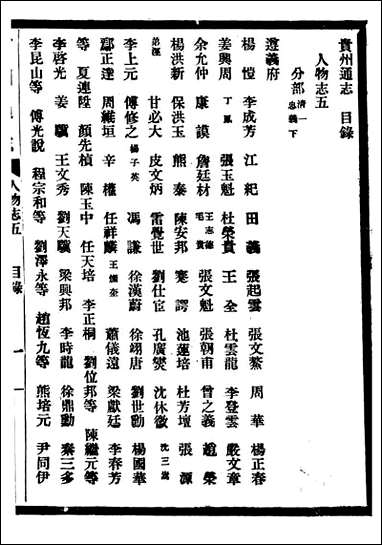 貴州通志 目錄
人物志五
分部 清一 忠義下
遵義府
楊愷 李成芳 江紀 田義 張起雲 張文鰲 周華 楊正春
姜興周 丁鳳 張玉魁 杜榮貴 王全 杜雲龍 李登雲 嚴文章
余允仲 康謨 詹廷材 王志德 毛貴 張文魁 張朝甫 曾之義 趙榮
楊洪新 保洪玉 熊泰 陳安邦 寋諤 池蓮培 杜芳壇 張源
弟涇 甘必大 皮文炳 雷覺世 劉仕宦 孔廣燮 沈休徵 沈三嵩
李上元 傅修之 楊子英 馮謙 徐漢蔚 徐翊唐 劉世勳 楊國華
鄢正達 周維垣 辛權 任祥麟 王煙奎 蕭儀遠 梁獻廷 李春芳
等 夏連陞 顏先楨 陳玉中 任天培 李正桐 劉位邦等 陳繼元等
李啓光 姜驥 王文秀 劉天驥 梁興邦 李時龍 徐鼎勳 秦三多
李昆山等 傅光說 程宗和等 劉澤永等 趙恆九等 熊培元 尹同伊
人物志五 目錄 一